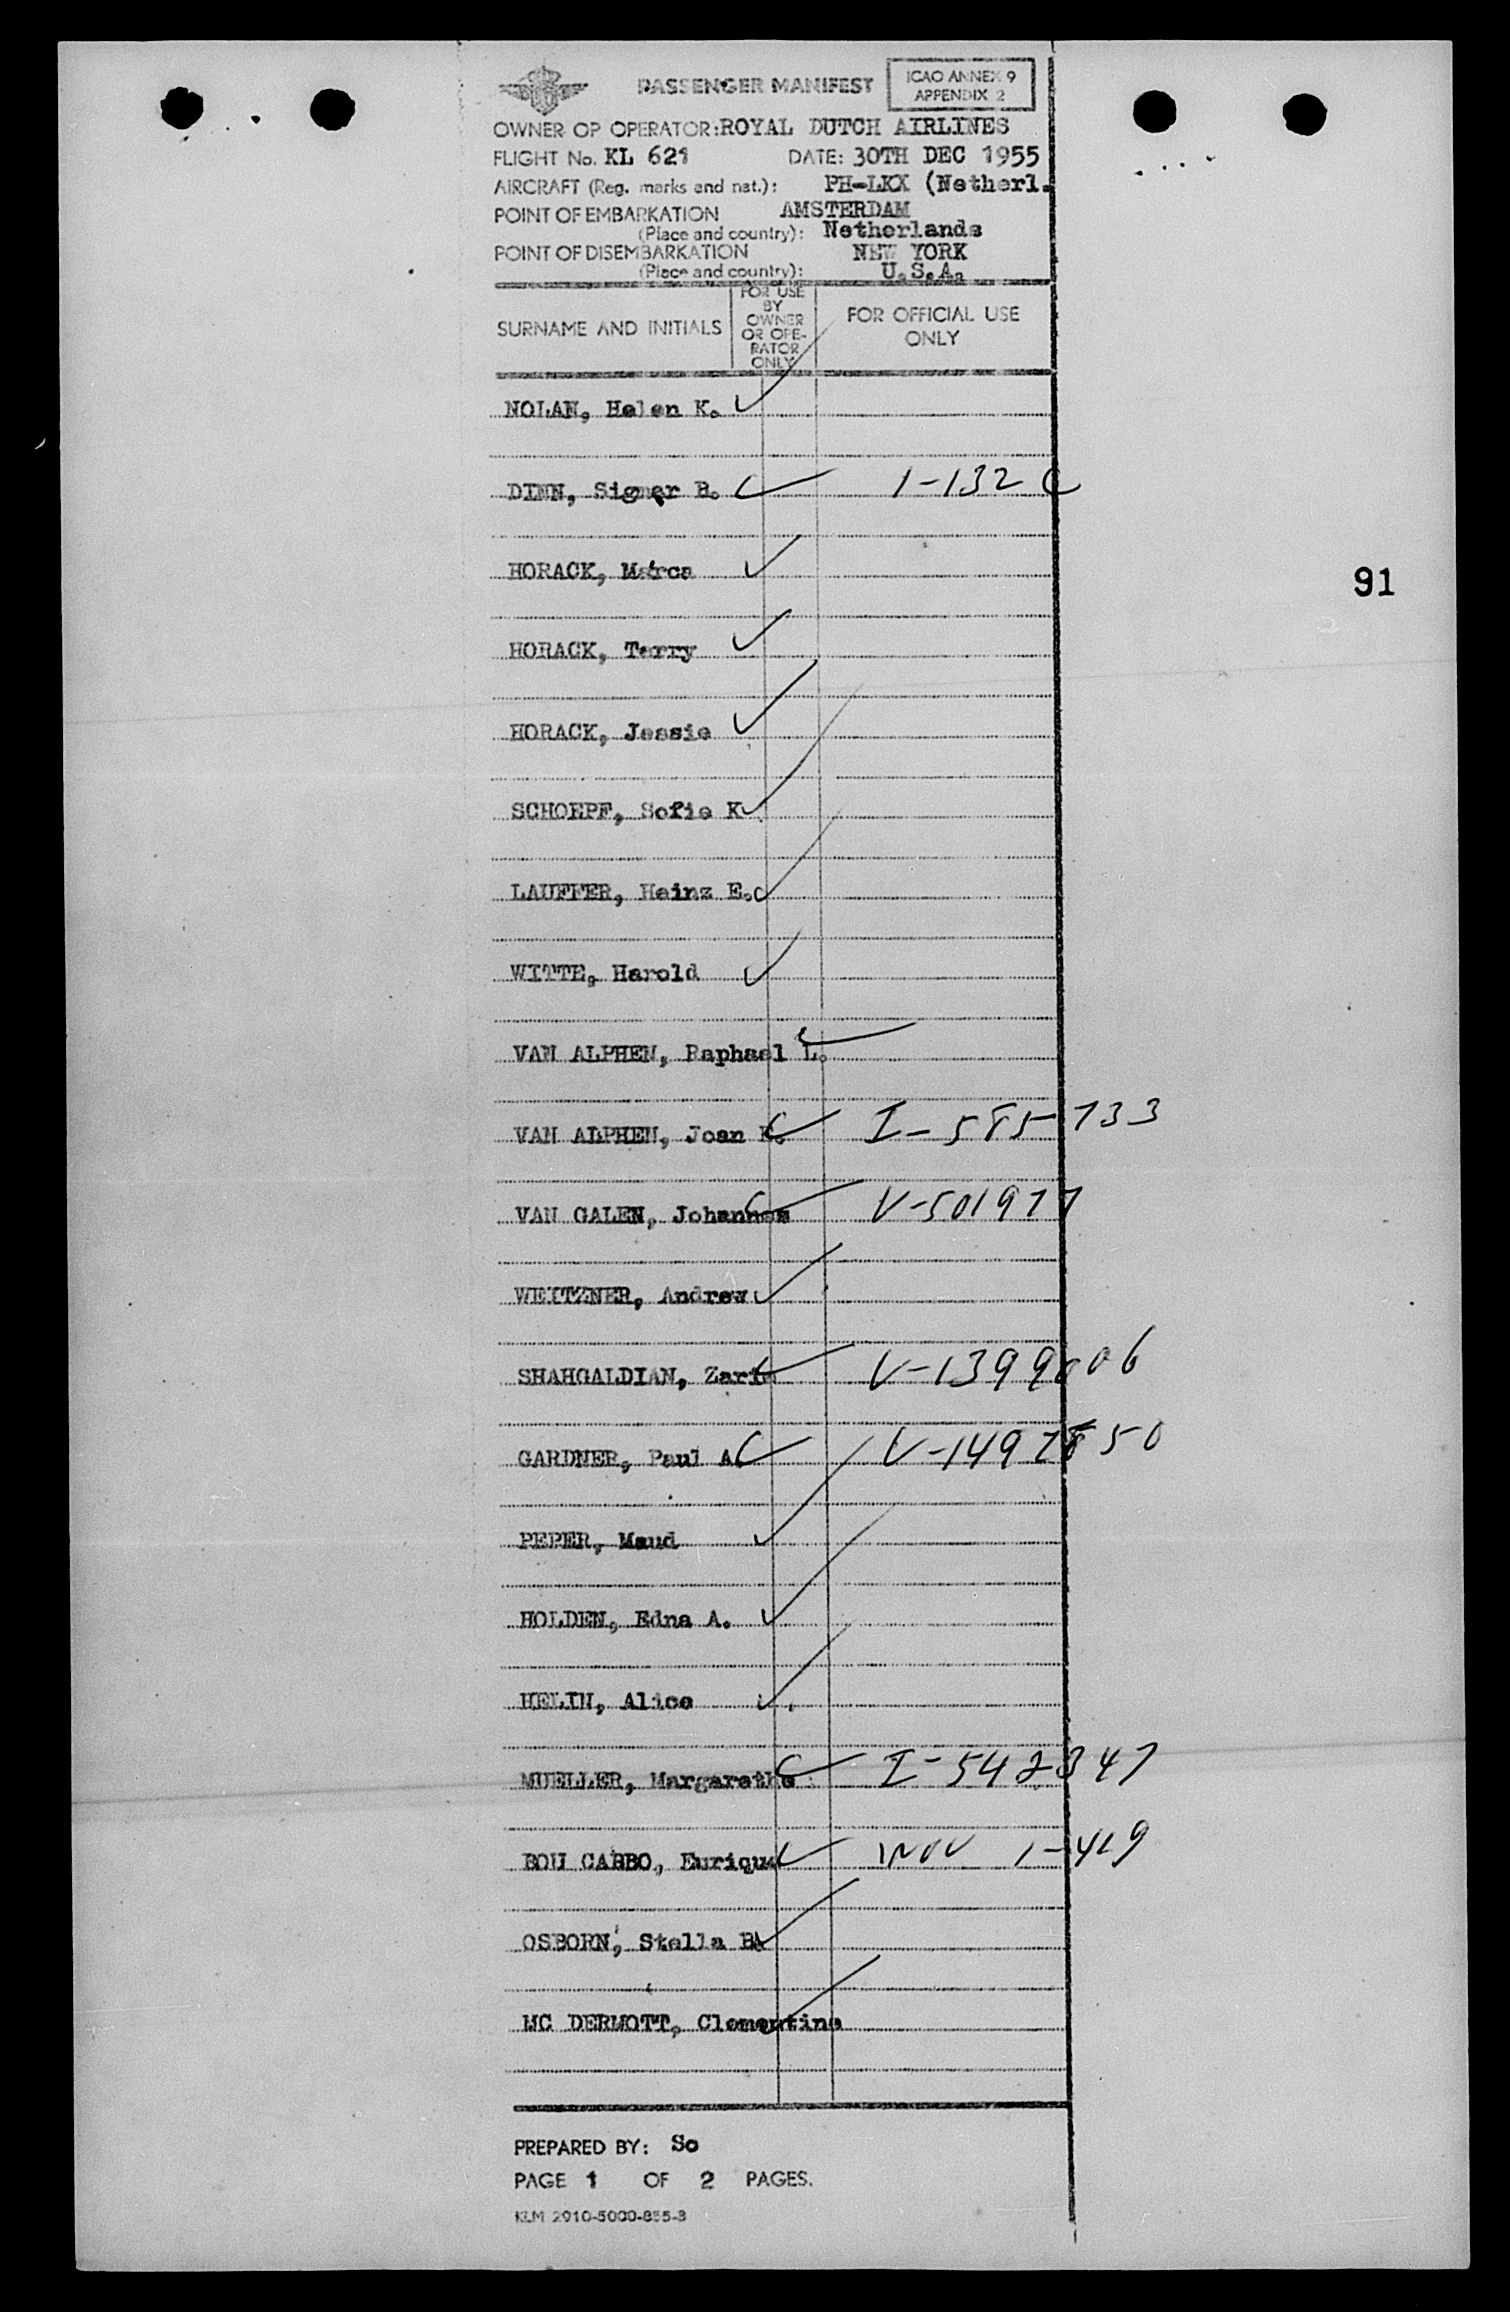 PASSENGER MANIFEST
ICAO ANNEX 9
APPENDIX 2
OWNER OR OPERATOR: ROYAL DUTCH AIRLINES
FLIGHT No. KL 621 DATE: 30TH DEC 1955
AIRCRAFT (Reg. marks and nat.): PH-LKX (Netherl.
POINT OF EMBARKATION AMSTERDAM
(Place and country): Netherlands
POINT OF DISEMBARKATION NEW YORK
(Place and country): U.S.A.
SURNAME AND INITIALS
FOR USE
BY
OWNER
OR OPE-
RATOR
ONLY
FOR OFFICIAL USE
ONLY
NOLAN, Helen K.
DINN, Signer B. 1-132 C
HORACK, Marca
91
HORACK, Terry
HORACK, Jessie
SCHOEPF, Sofie K
LAUFFER, Heinz E.
WITTE, Harold
VAN ALPHEN, Raphael L.
VAN ALPHEN, Joan I-585733
VAN GALEN, Johannes V-501977
WEITZNER, Andrew
SHAHGALDIAN, V-1399006
GARDNER, Paul A. V-1497850
PEPER, Maud
HOLDEN, Edna A.
HELIN, Alice
MUELLER, Margarethe I-542347
BOU CARBO, Enrique 1-419
OSBORN, Stella B.
MC DERMOTT, Clementine
PREPARED BY: So
PAGE 1 OF 2 PAGES.
KLM 2910-5000-855-3